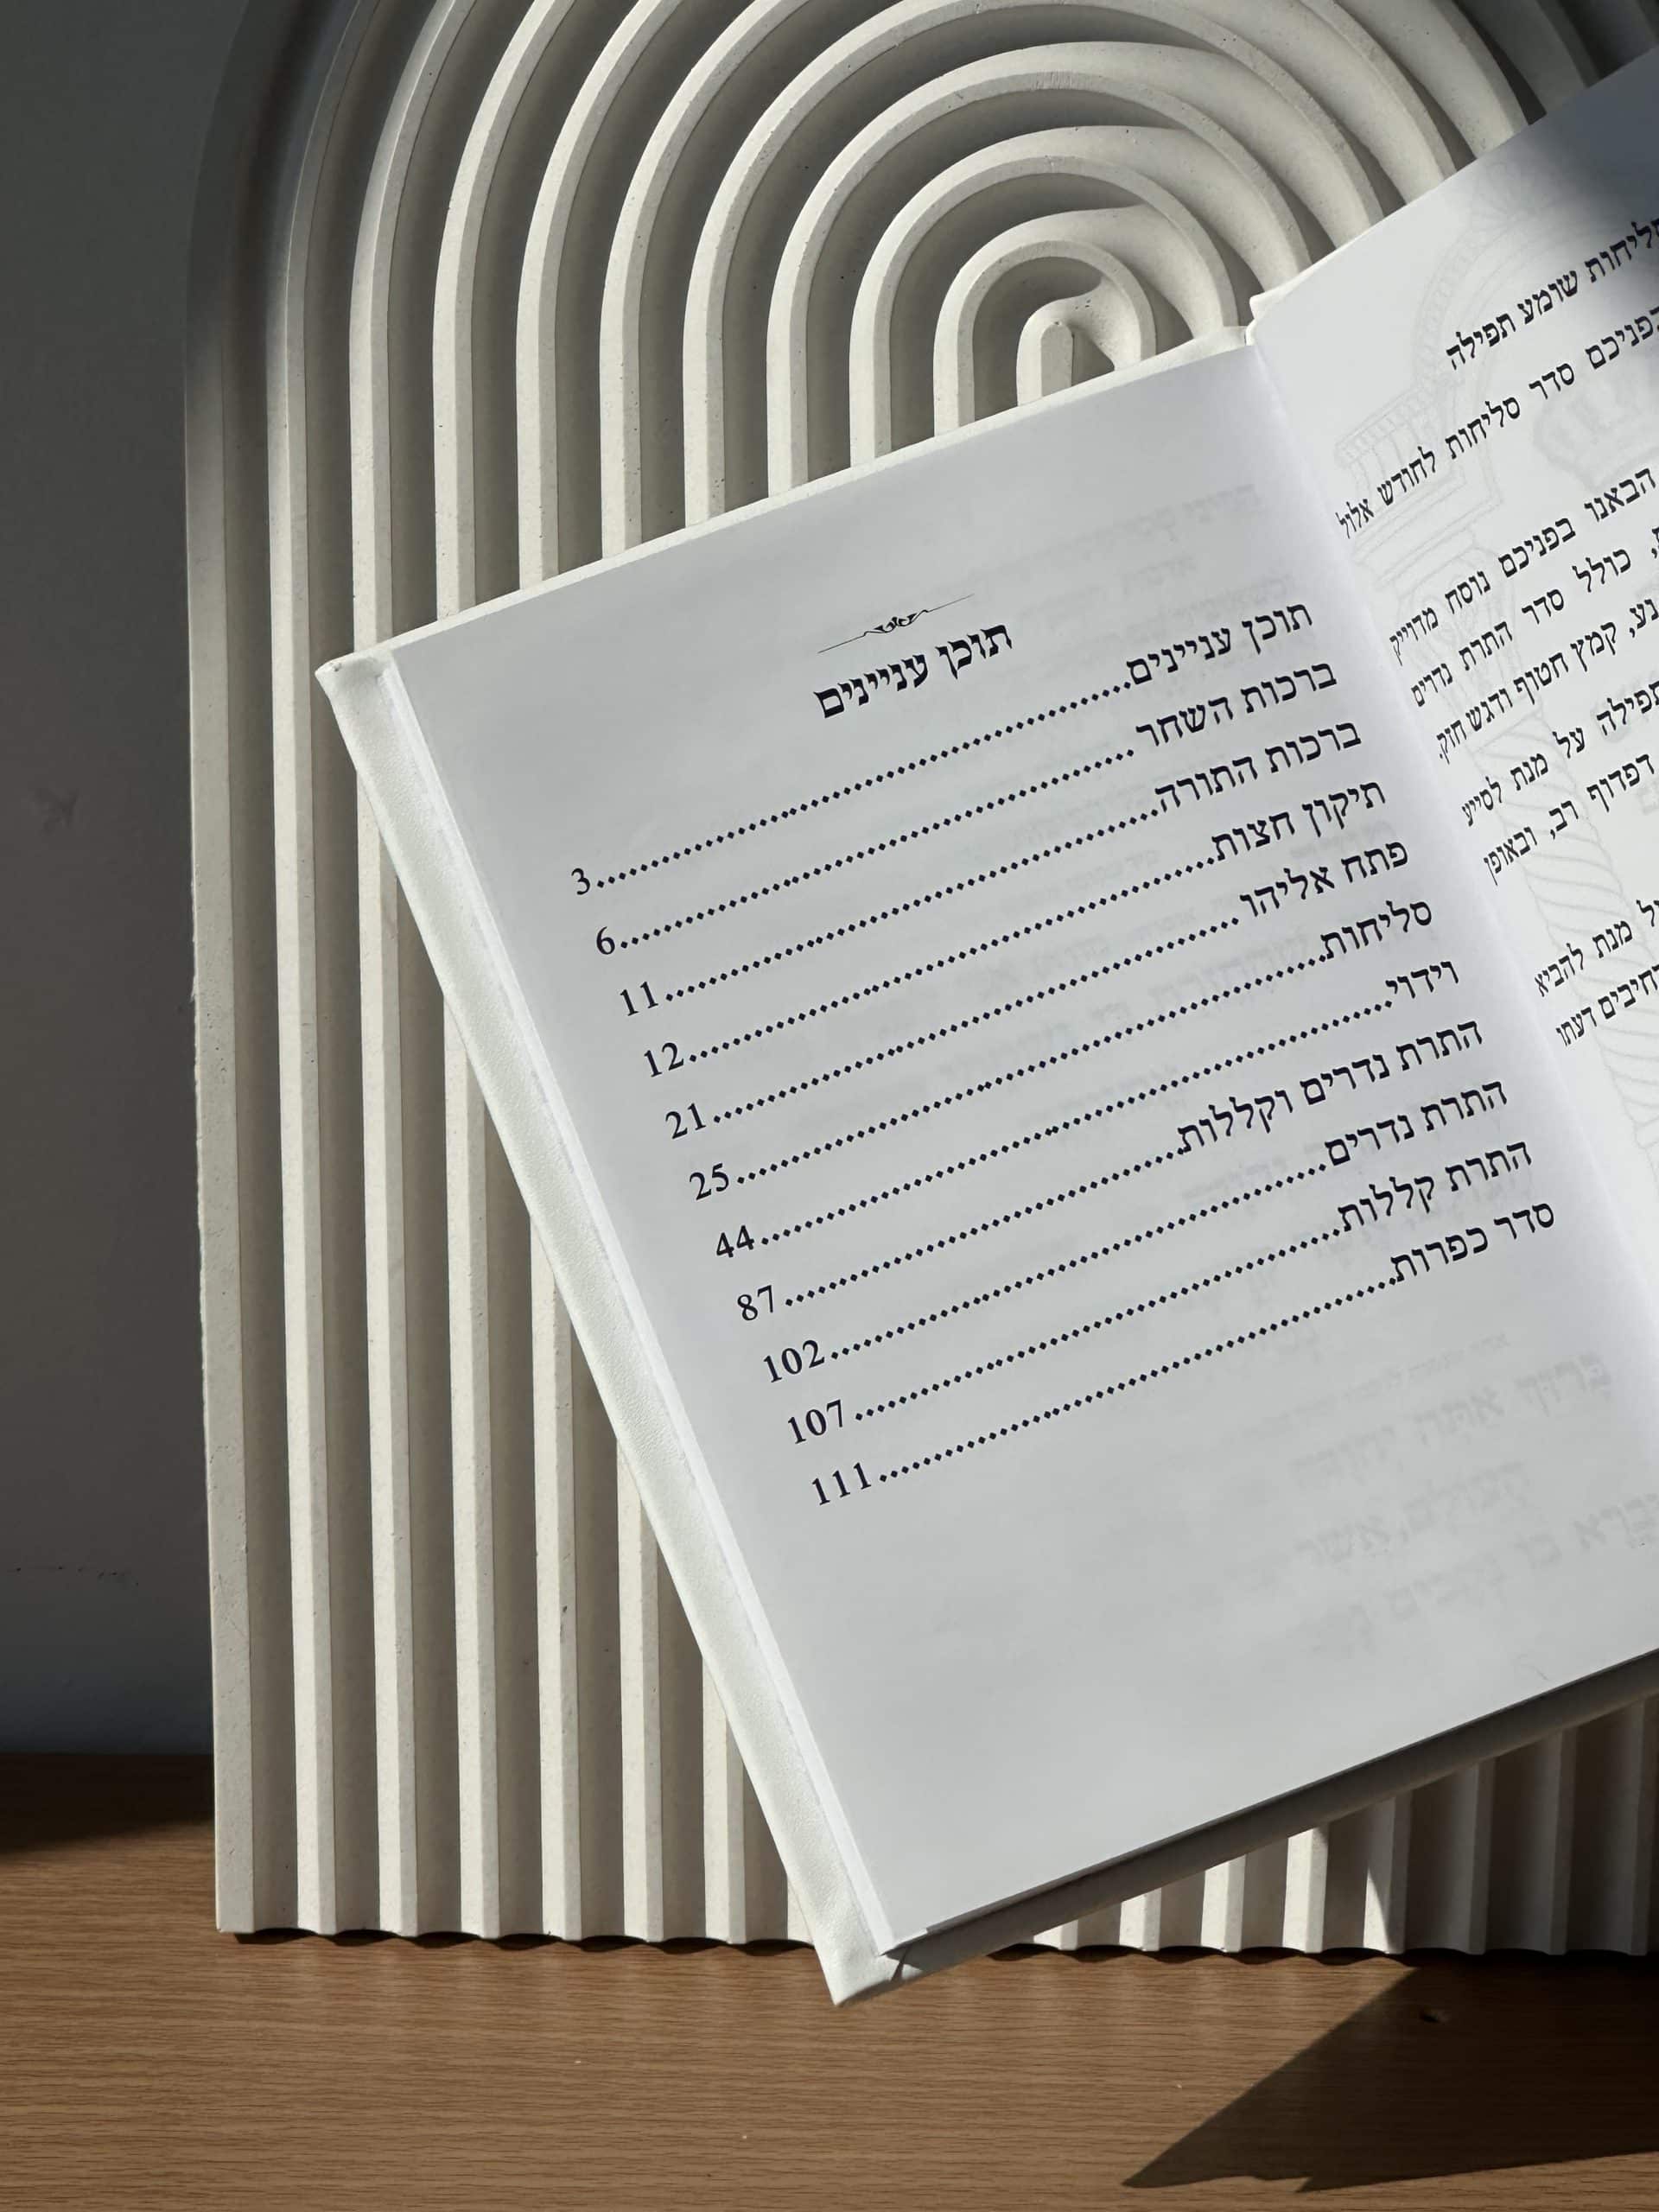 סליחות שומע תפילה
בפניכם סדר סליחות לחודש אלול
הבאנו בפניכם נוסח מדוייק
כולל סדר התרת נדרים
נע, קמץ חטוף ודגש חזק.
תפילה על מנת לסייע
דפדוף רב, ובאופן
על מנת להביא
דעתו
תוכן עניינים
תוכן עניינים 3
ברכות השחר 6
ברכות התורה 11
תיקון חצות 12
פתח אליהו 21
סליחות 25
וידוי 44
התרת נדרים וקללות 87
התרת נדרים 102
התרת קללות 107
סדר כפרות 111